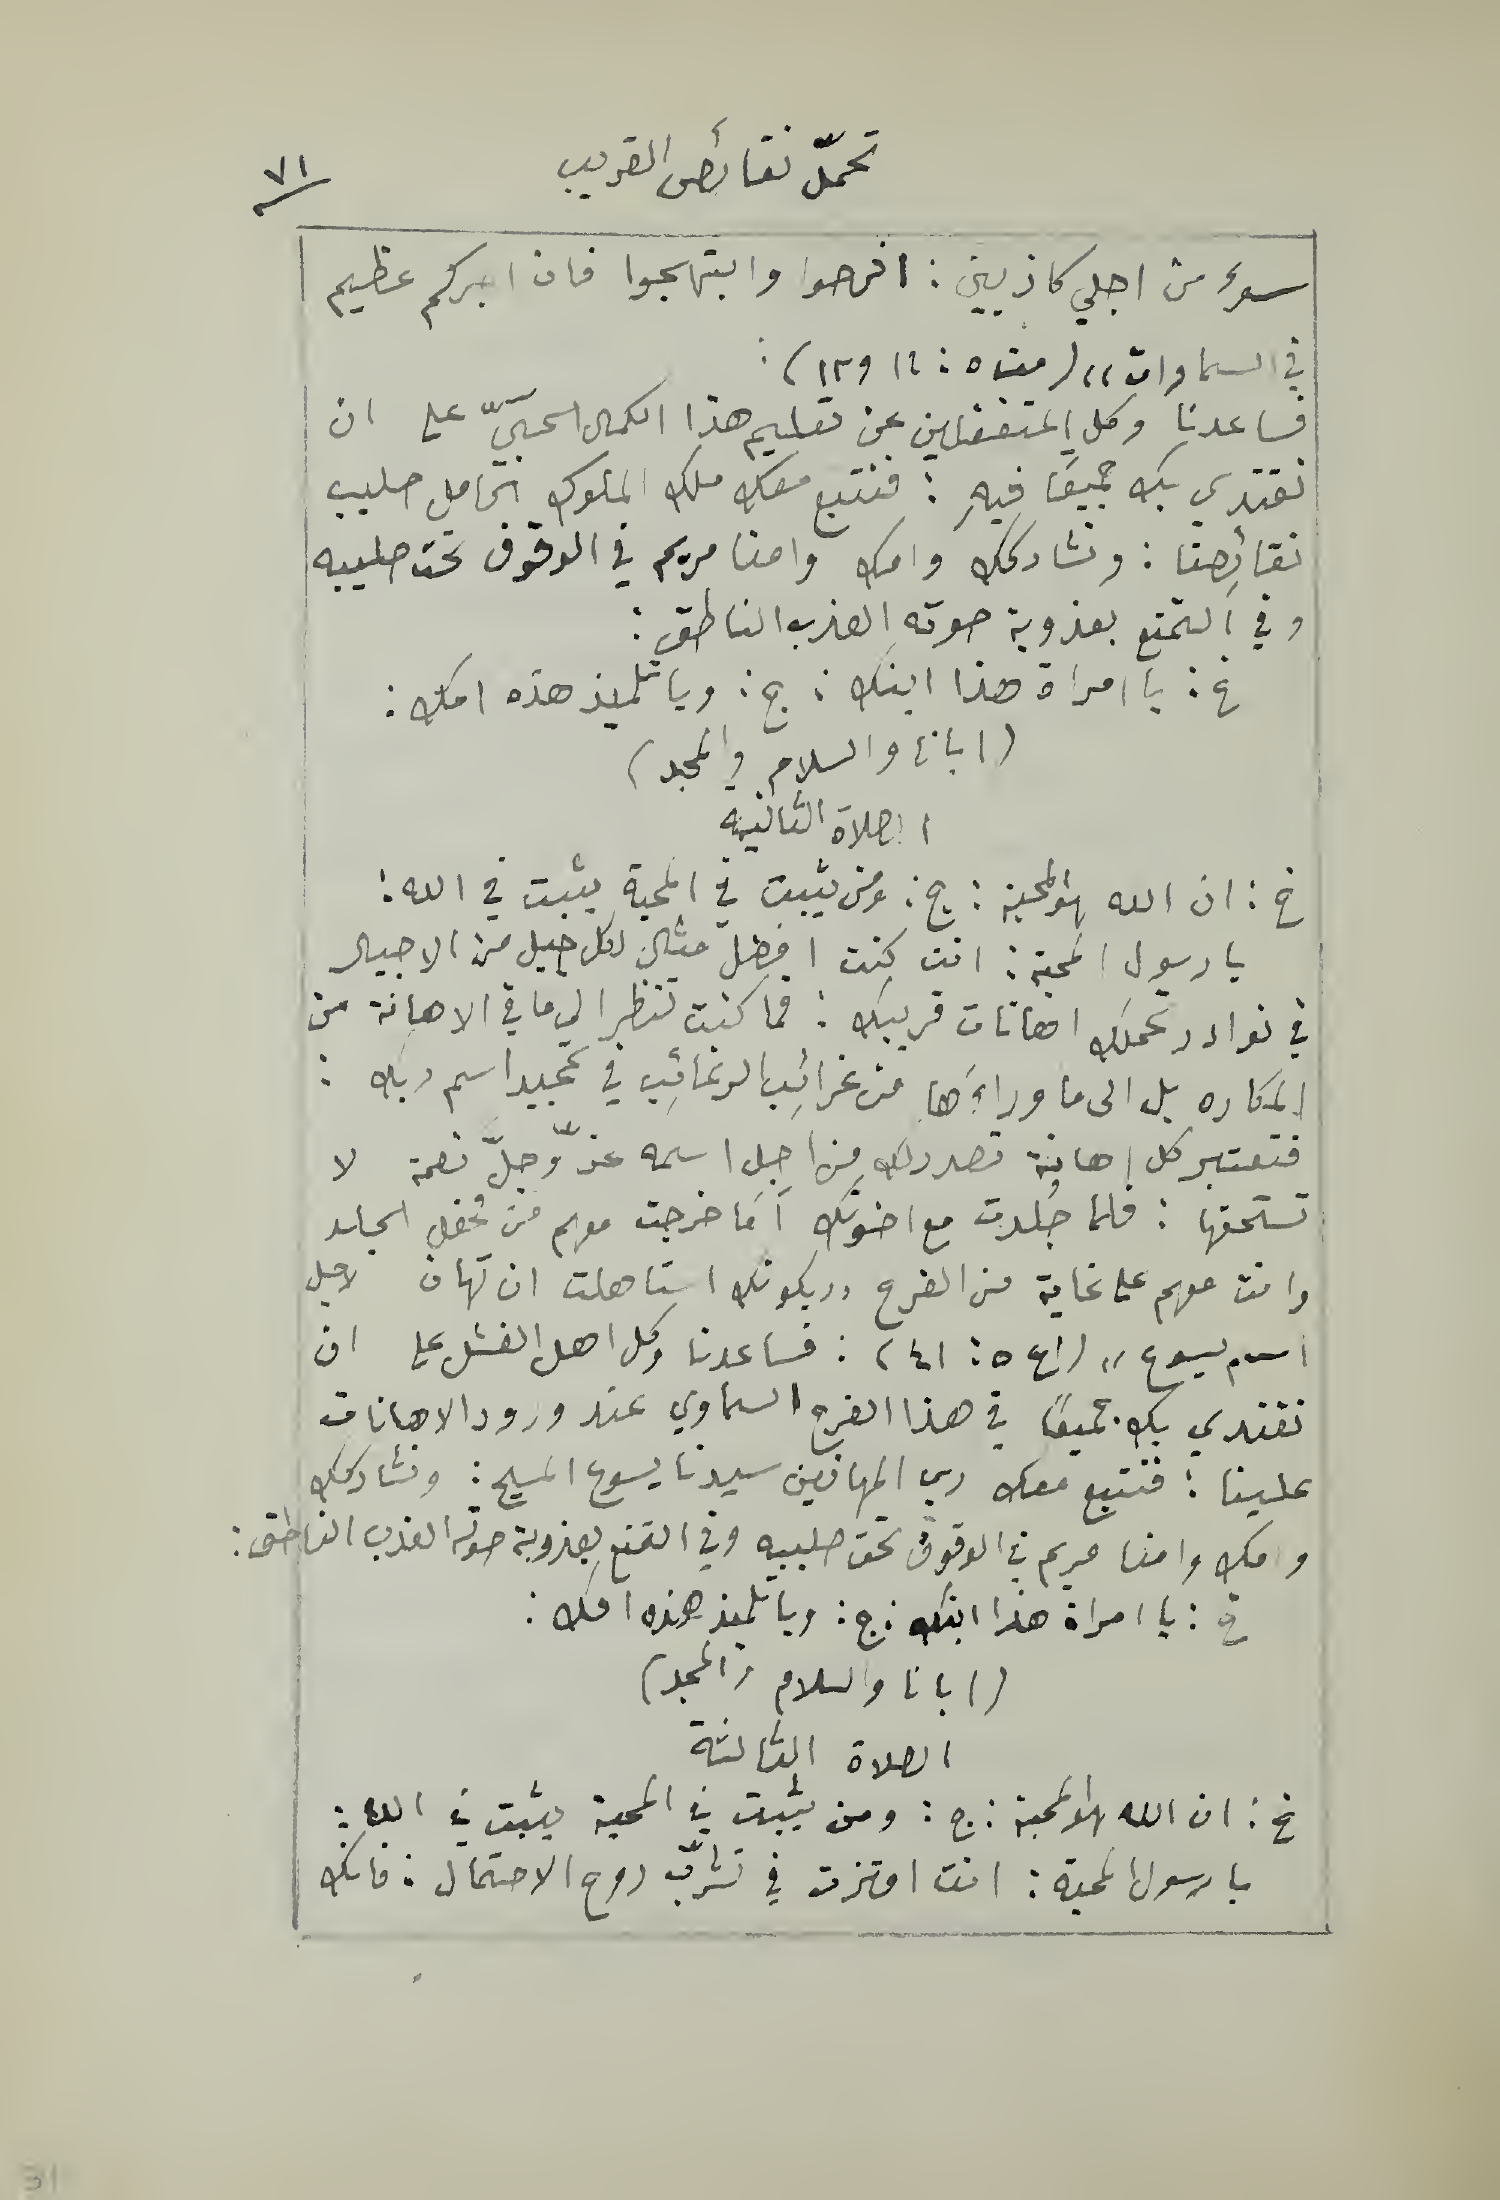 تحمّل نقائص القريب
٧١
سوء من اجلي كاذبين : افرحوا وابتهجوا فان اجركم عظيم
في السماوات ،، ( مت ٥ : ١١ و١٢ ) :
فساعدنا وكل المتغفلين عن تعليم هذا الكمال الحبيّ على ان
نقتدي بك جميعًا فيهِ : فنتبع معك ملك الملوك الحامل صليب
نقائِصنا : ونشاركك وامك وامنا مريم في الوقوف تحت صليبه
وفي التمتع بعذوبة صوته العذب الناطق :
خ : يا امراة هذا ابنك : ج : ويا تلميذ هذه امك :
( ابانا والسلام والمجد )
الصلاة الثانيه
خ : ان الله لهو المحبة : ج : ومن يثبت في المحبة يثبت في الله :
يا رسول المحبة : انت كنت افضل مثال لكل جيل من الاجيال
في نوادر تحملك اهانات قريبك : فما كنت تنظر الى ما في الاهانة من
المكاره بل الى ما وراءَها من غرائِب الرغائِب في تمجيد اسم ربك :
فتعتبر كل اهانة تصدر لك من اجل اسمه عزّ وجلّ نعمة لا
تستحقها : فلما جُلدت مع اخوتك أَمَا خرجت معهم من محفل الجلد
وانت معهم على غاية من الفرح ,, بكونك استاهلت ان تهان لاجل
اسم يسوع ،، ( اع ٥ : ٤١ ) : فساعدنا وكل اهل الفشل على ان
نقتدي بك جميعًا في هذا الفرح السماوي عند ورود الاهانات
علينا : فنتبع معك رب المهانين سيدنا يسوع المسيح : ونشاركك
وامك وامنا مريم في الوقوف تحت صليبه وفي التمتع بعذوبة صوته العذب الناطق :
خ : يا امراة هذا ابنك : ج : ويا تلميذ هذه امك :
( ابانا والسلام والمجد )
الصلاة الثالثة
خ : ان الله لهو المحبة : ج : ومن يثبت في المحبة يثبت في الله :
يا رسول المحبة : انت امتزت في تشرّب روح الاحتمال : فانك